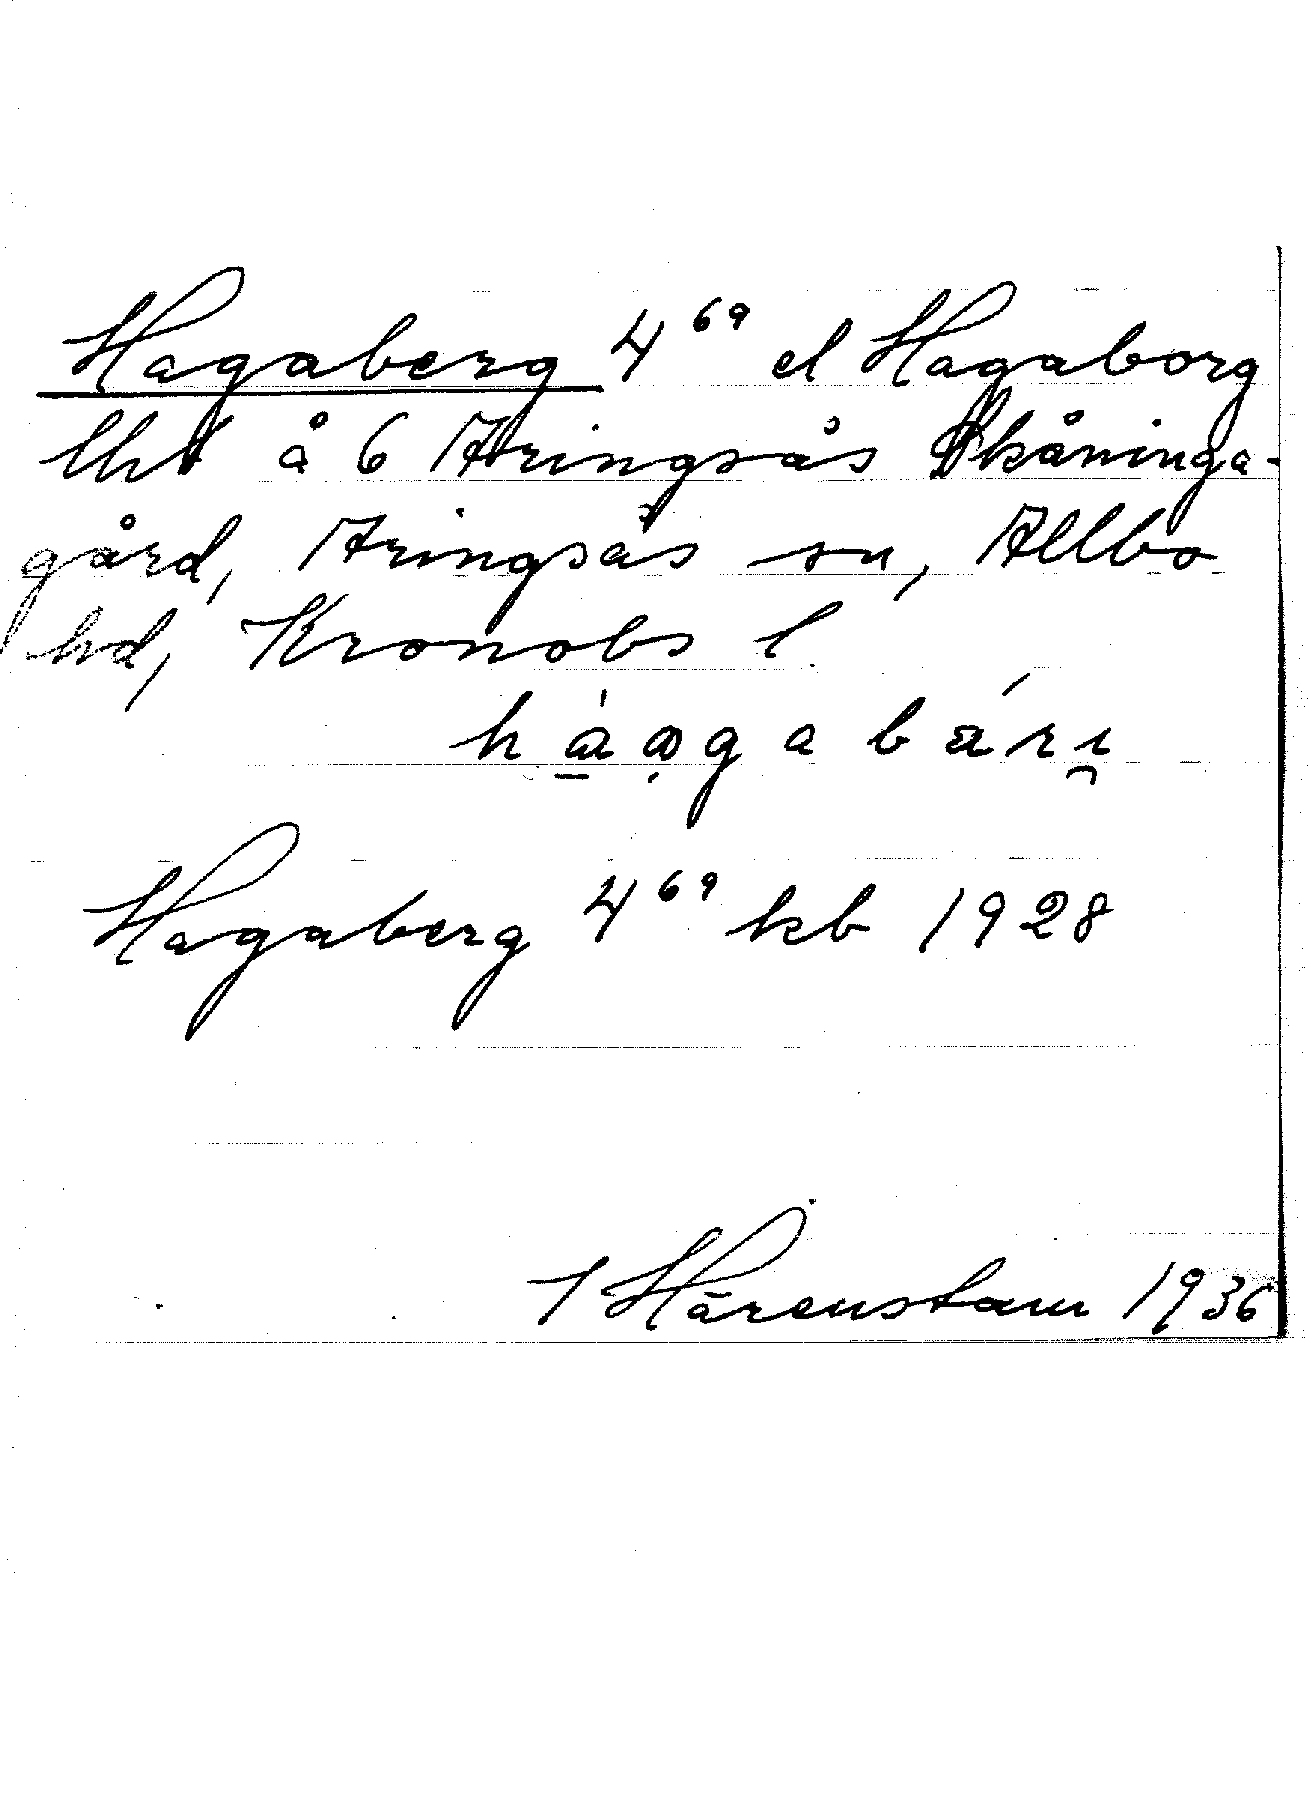 Hagaberg 4⁶⁹ el Hagaborg
lht å 6 Aringsås Skåninga-
gård, Aringsås sn, Allbo
hd, Kronobs l.
Hagaberg 4⁶⁹ kb 1928
I Härenstam 1936